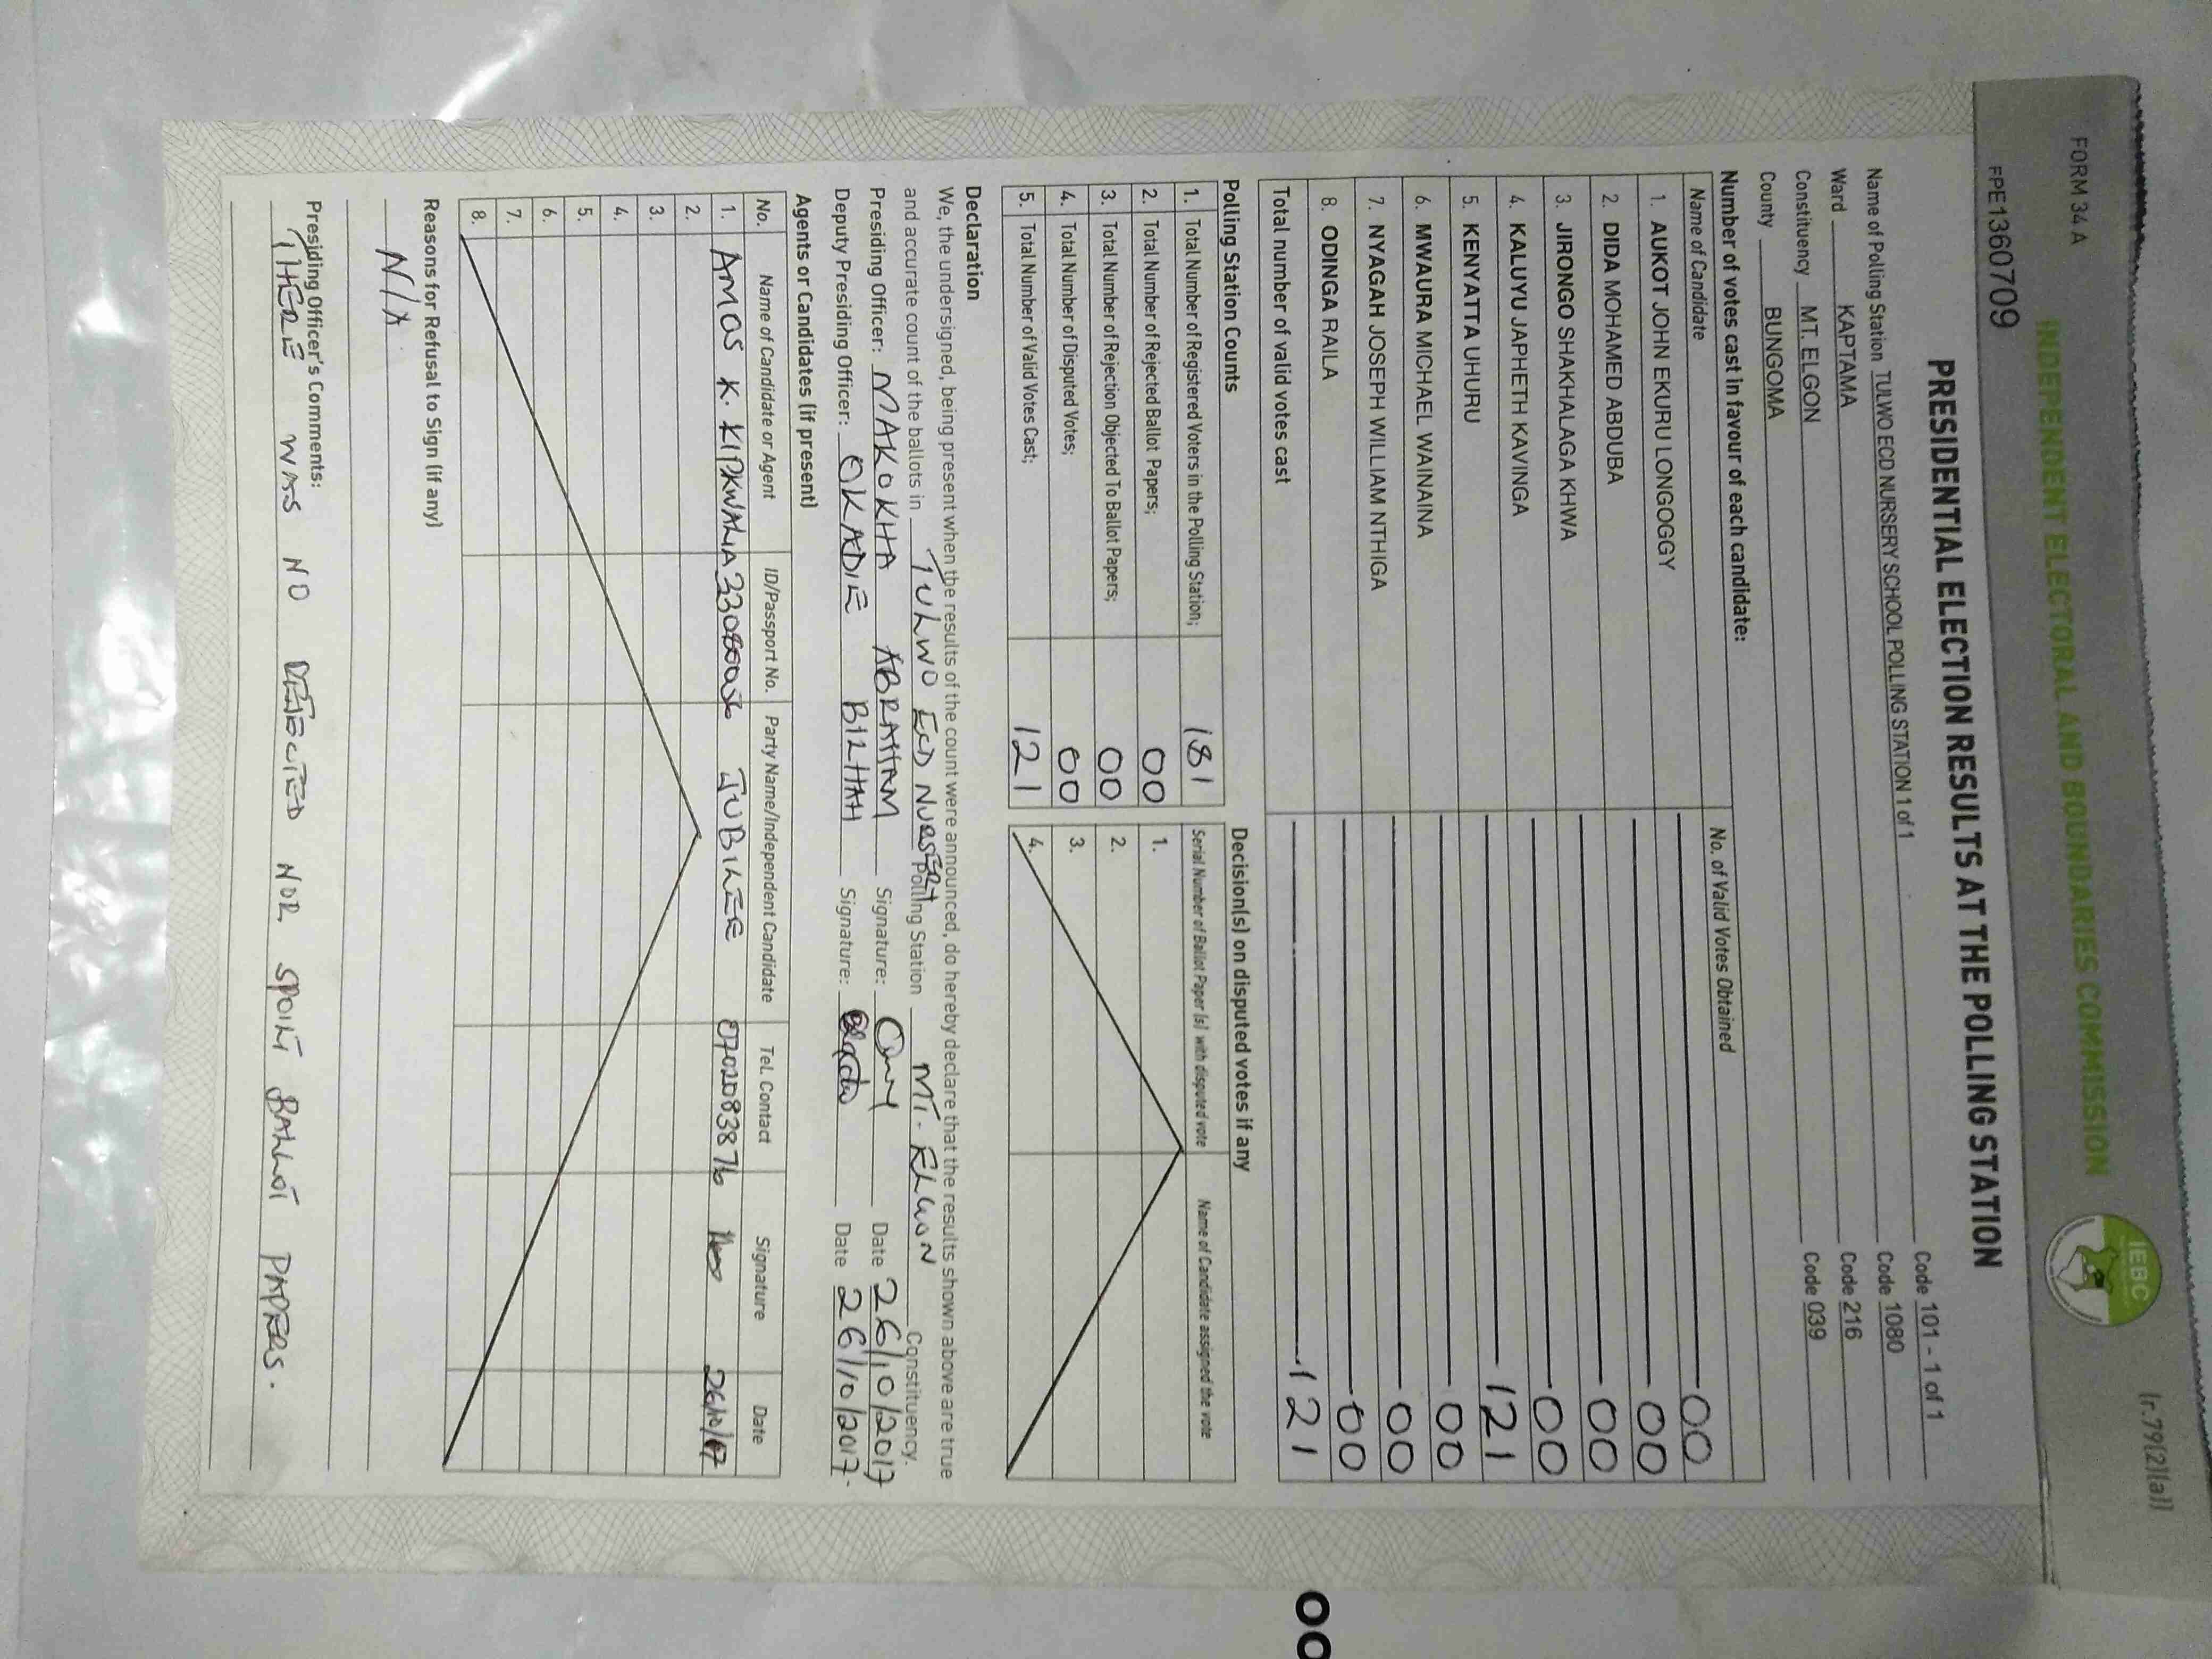 FORM 34 A
(r.79(2)(a))
INDEPENDENT ELECTORAL AND BOUNDARIES COMMISSION
IEBC
FPE1360709
PRESIDENTIAL ELECTION RESULTS AT THE POLLING STATION
Name of Polling Station TULWO ECD NURSERY SCHOOL POLLING STATION 1 of 1 Code 101 - 1 of 1
Ward KAPTAMA Code 1080
Constituency MT. ELGON Code 216
County BUNGOMA Code 039
Number of votes cast in favour of each candidate:
Name of Candidate No. of Valid Votes Obtained
1. AUKOT JOHN EKURU LONGOGGY 00
2. DIDA MOHAMED ABDUBA 00
3. JIRONGO SHAKHALAGA KHWA 00
4. KALUYU JAPHETH KAVINGA 00
5. KENYATTA UHURU 121
6. MWAURA MICHAEL WAINAINA 00
7. NYAGAH JOSEPH WILLIAM NTHIGA 00
8. ODINGA RAILA 00
Total number of valid votes cast 121
Polling Station Counts
1. Total Number of Registered Voters in the Polling Station; 181
2. Total Number of Rejected Ballot Papers; 00
3. Total Number of Rejection Objected To Ballot Papers; 00
4. Total Number of Disputed Votes; 00
5. Total Number of Valid Votes Cast; 121
Decision(s) on disputed votes if any
Serial Number of Ballot Paper (s) with disputed vote Name of Candidate assigned the vote
1.
2.
3.
4.
Declaration
We, the undersigned, being present when the results of the count were announced, do hereby declare that the results shown above are true
and accurate count of the ballots in TULWO ECD NURSERY Polling Station MT. ELGON Constituency.
Presiding Officer: MAKOKHA ABRAHAM Signature: Date 26/10/2017
Deputy Presiding Officer: OKADIE BILHAH Signature: Date 26/10/2017.
Agents or Candidates (if present)
No. Name of Candidate or Agent ID/Passport No. Party Name/Independent Candidate Tel. Contact Signature Date
1. AMOS K. JUBILEE 0702083876 26/10/17
2.
3.
4.
5.
6.
7.
8.
Reasons for Refusal to Sign (if any)
N/A.
Presiding Officer's Comments:
THERE WAS NO DETECTED NOR SPOILT BALLOT PAPERS.
00